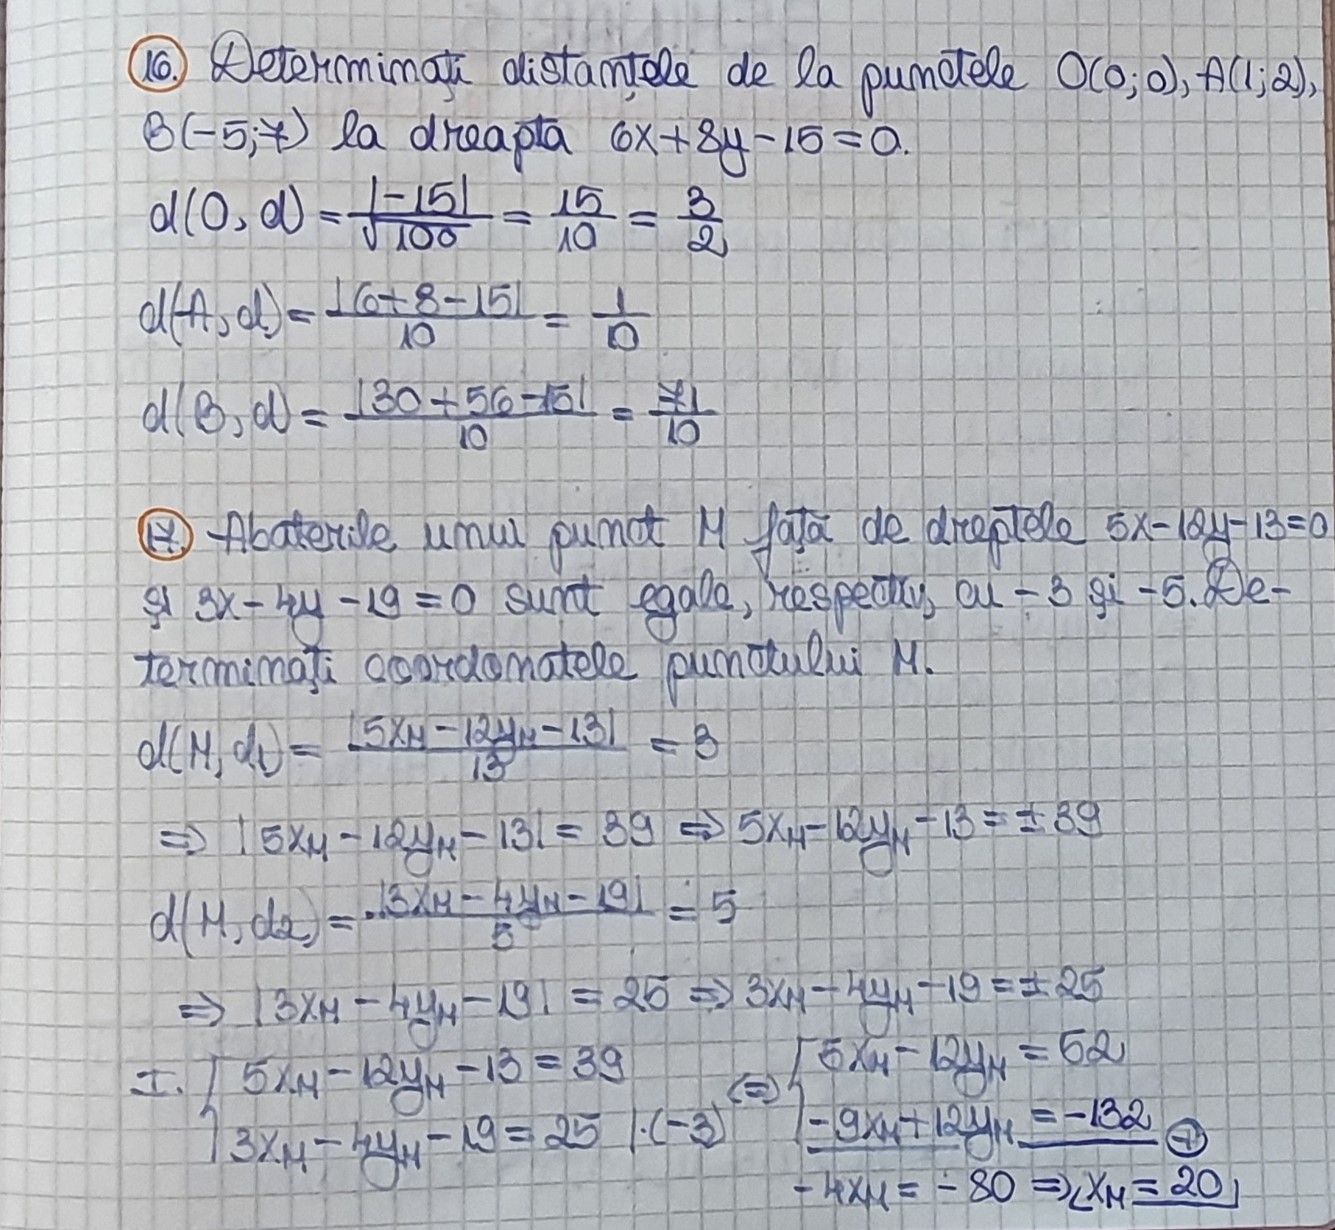 16. Determinați distanțele de la punctele O(0;0), A(1;2),
B(-5;7) la dreapta 6x+8y-15=0.
d(O,d)=|-15|/√100=15/10=3/2
d(A,d)=|6+8-15|/10=1/10
d(B,d)=|30+56-15|/10=71/10
17. Abaterile unui punct M față de dreptele 5x-12y-13=0
și 3x-4y-19=0 sunt egale, respectiv, cu -3 și -5. De-
terminați coordonatele punctului M.
d(M,d₁)=|5xM-12yM-13|/13=3
⇒ |5xM-12yM-13|=39 ⇒ 5xM-12yM-13=±39
d(M,d₂)=|3xM-4yM-19|/5=5
⇒ |3xM-4yM-19|=25 ⇒ 3xM-4yM-19=±25
I. { 5xM-12yM-13=39 ⇔ { 5xM-12yM=52
3xM-4yM-19=25 |·(-3) -9xM+12yM=-132 ⊕
-4xM=-80 ⇒ xM=20